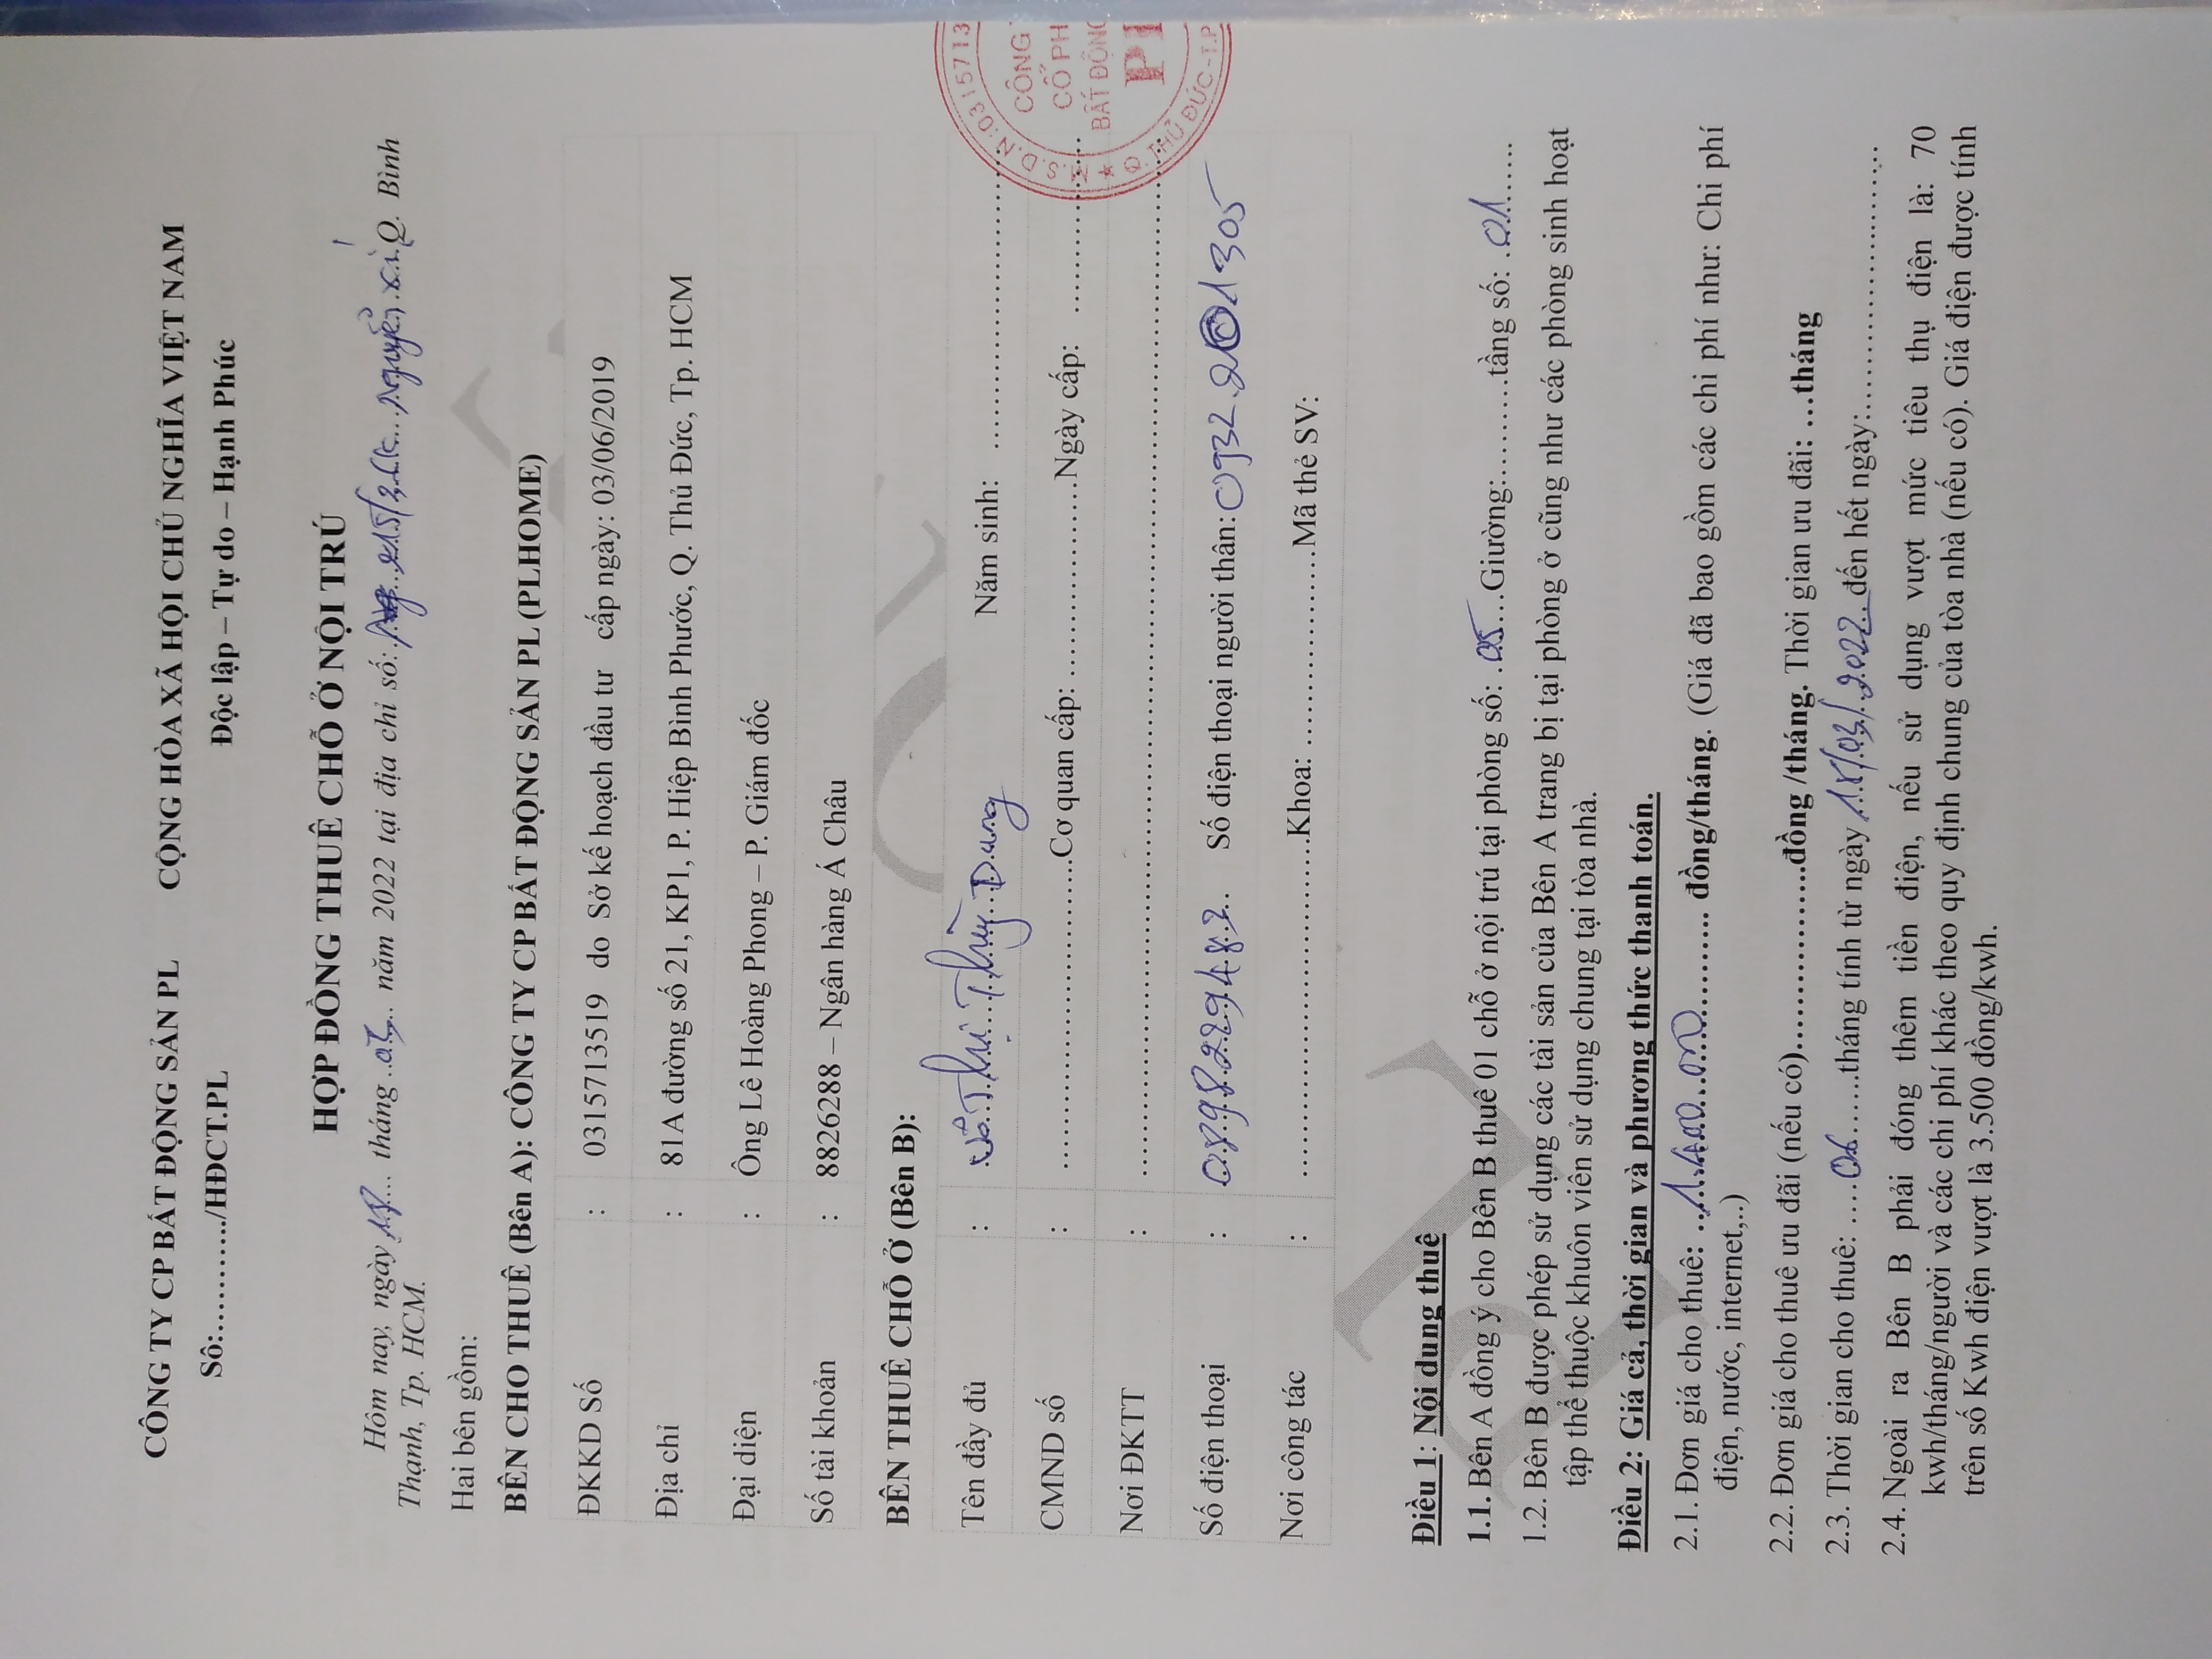 CÔNG TY CP BẤT ĐỘNG SẢN PL CỘNG HÒA XÃ HỘI CHỦ NGHĨA VIỆT NAM
Số:............/HĐCT.PL Độc lập – Tự do – Hạnh Phúc
HỢP ĐỒNG THUÊ CHỖ Ở NỘI TRÚ
Hôm nay, ngày .... tháng ..... năm 2022 tại địa chỉ số: Nguyễn Xí, Q. Bình
Thạnh, Tp. HCM.
Hai bên gồm:
BÊN CHO THUÊ (Bên A): CÔNG TY CP BẤT ĐỘNG SẢN PL (PLHOME)
ĐKKD Số : 0315713519 do Sở kế hoạch đầu tư cấp ngày: 03/06/2019
Địa chỉ : 81A đường số 21, KP1, P. Hiệp Bình Phước, Q. Thủ Đức, Tp. HCM
Đại diện : Ông Lê Hoàng Phong – P. Giám đốc
Số tài khoản : 8826288 – Ngân hàng Á Châu
BÊN THUÊ CHỖ Ở (Bên B):
Tên đầy đủ : Thị Thùy Dung Năm sinh: ..............................
CMND số : ..............................Cơ quan cấp: ...................Ngày cấp: ..................
Nơi ĐKTT : ....................................................................................
Số điện thoại : 0898229482 Số điện thoại người thân: 0932 201305
Nơi công tác : ..............................Khoa: ...................Mã thẻ SV:
M.S.D.N:0315713
CÔNG
CỔ PH
BẤT ĐỘNG
Q. THỦ ĐỨC - T.P
Điều 1: Nội dung thuê
1.1. Bên A đồng ý cho Bên B thuê 01 chỗ ở nội trú tại phòng số: .05....Giường:..........tầng số: .01.......
1.2. Bên B được phép sử dụng các tài sản của Bên A trang bị tại phòng ở cũng như các phòng sinh hoạt
tập thể thuộc khuôn viên sử dụng chung tại tòa nhà.
Điều 2: Giá cả, thời gian và phương thức thanh toán.
2.1. Đơn giá cho thuê: ..1.400.000............. đồng/tháng. (Giá đã bao gồm các chi phí như: Chi phí
điện, nước, internet,..)
2.2. Đơn giá cho thuê ưu đãi (nếu có)....................đồng /tháng. Thời gian ưu đãi: ...tháng
2.3. Thời gian cho thuê: ....06.......tháng tính từ ngày 15/03/2022 đến hết ngày:........................
2.4. Ngoài ra Bên B phải đóng thêm tiền điện, nếu sử dụng vượt mức tiêu thụ điện là: 70
kwh/tháng/người và các chi phí khác theo quy định chung của tòa nhà (nếu có). Giá điện được tính
trên số Kwh điện vượt là 3.500 đồng/kwh.